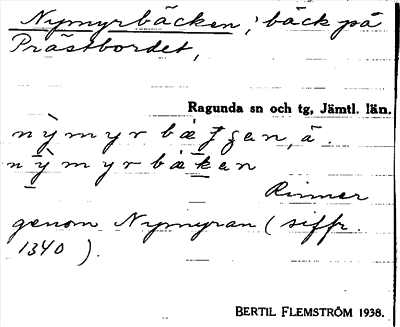 Nymyrbäcken, bäck på
Prästbordet,
Ragunda sn och tg, Jämtl. län.
nỳmyrbæ̀ʈʃen, ä.
nỳmyrbæken
Rinner
genom Nymyran (siffr.
1340).
BERTIL FLEMSTRÖM 1938.